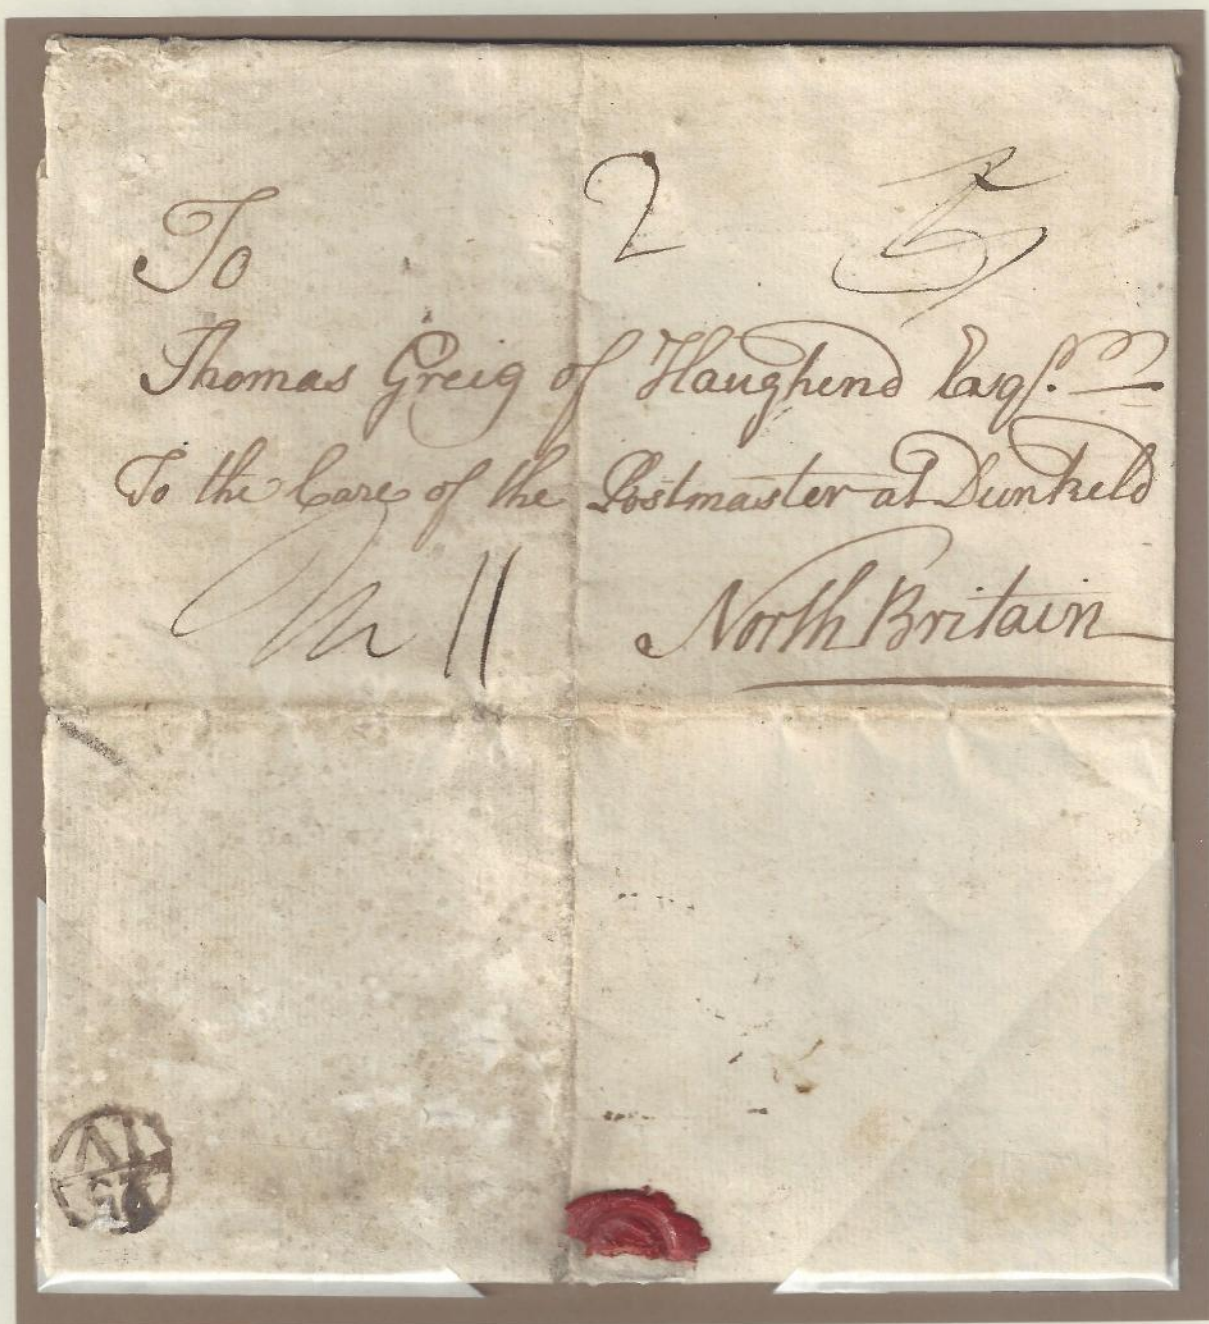 2
To
Thomas Greig of Haughend Esqr.
To the Care of the Postmaster at Dunkeld
In 11
North Britain